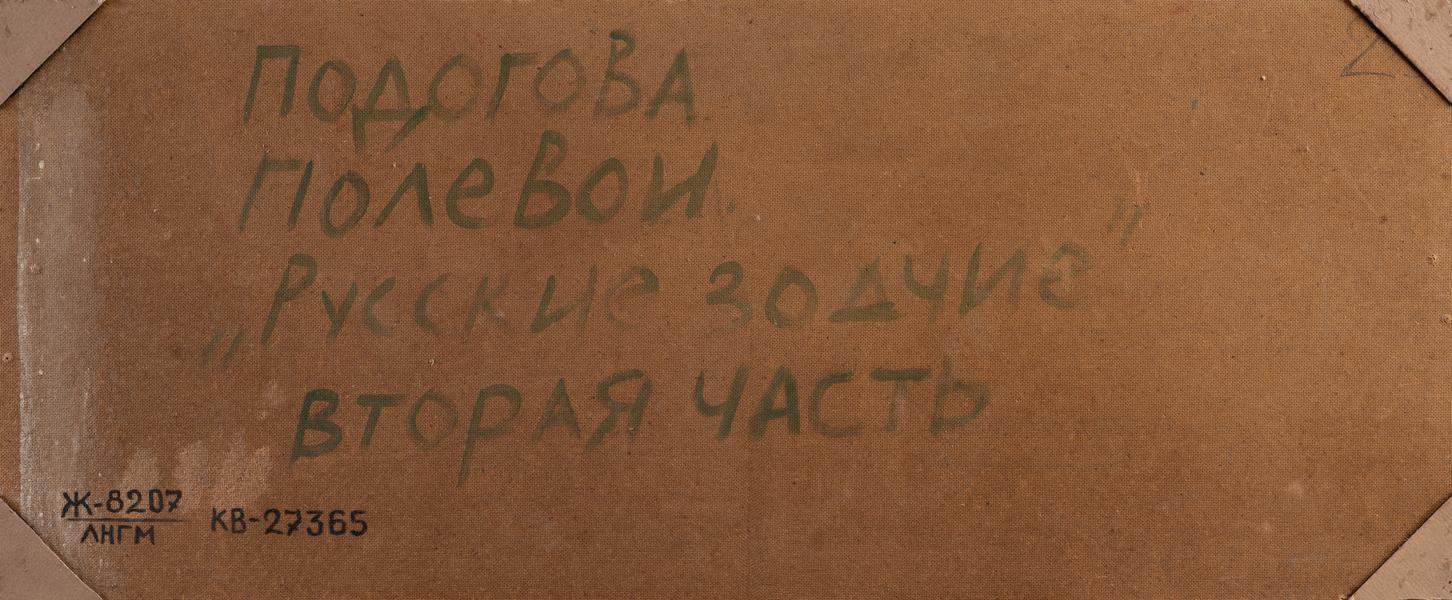 2
ПОДОГОВА
ПОЛЕВОЙ.
„Русские зодчие"
ВТОРАЯ ЧАСТЬ
Ж-8207
ЛНГМ
КВ-27365